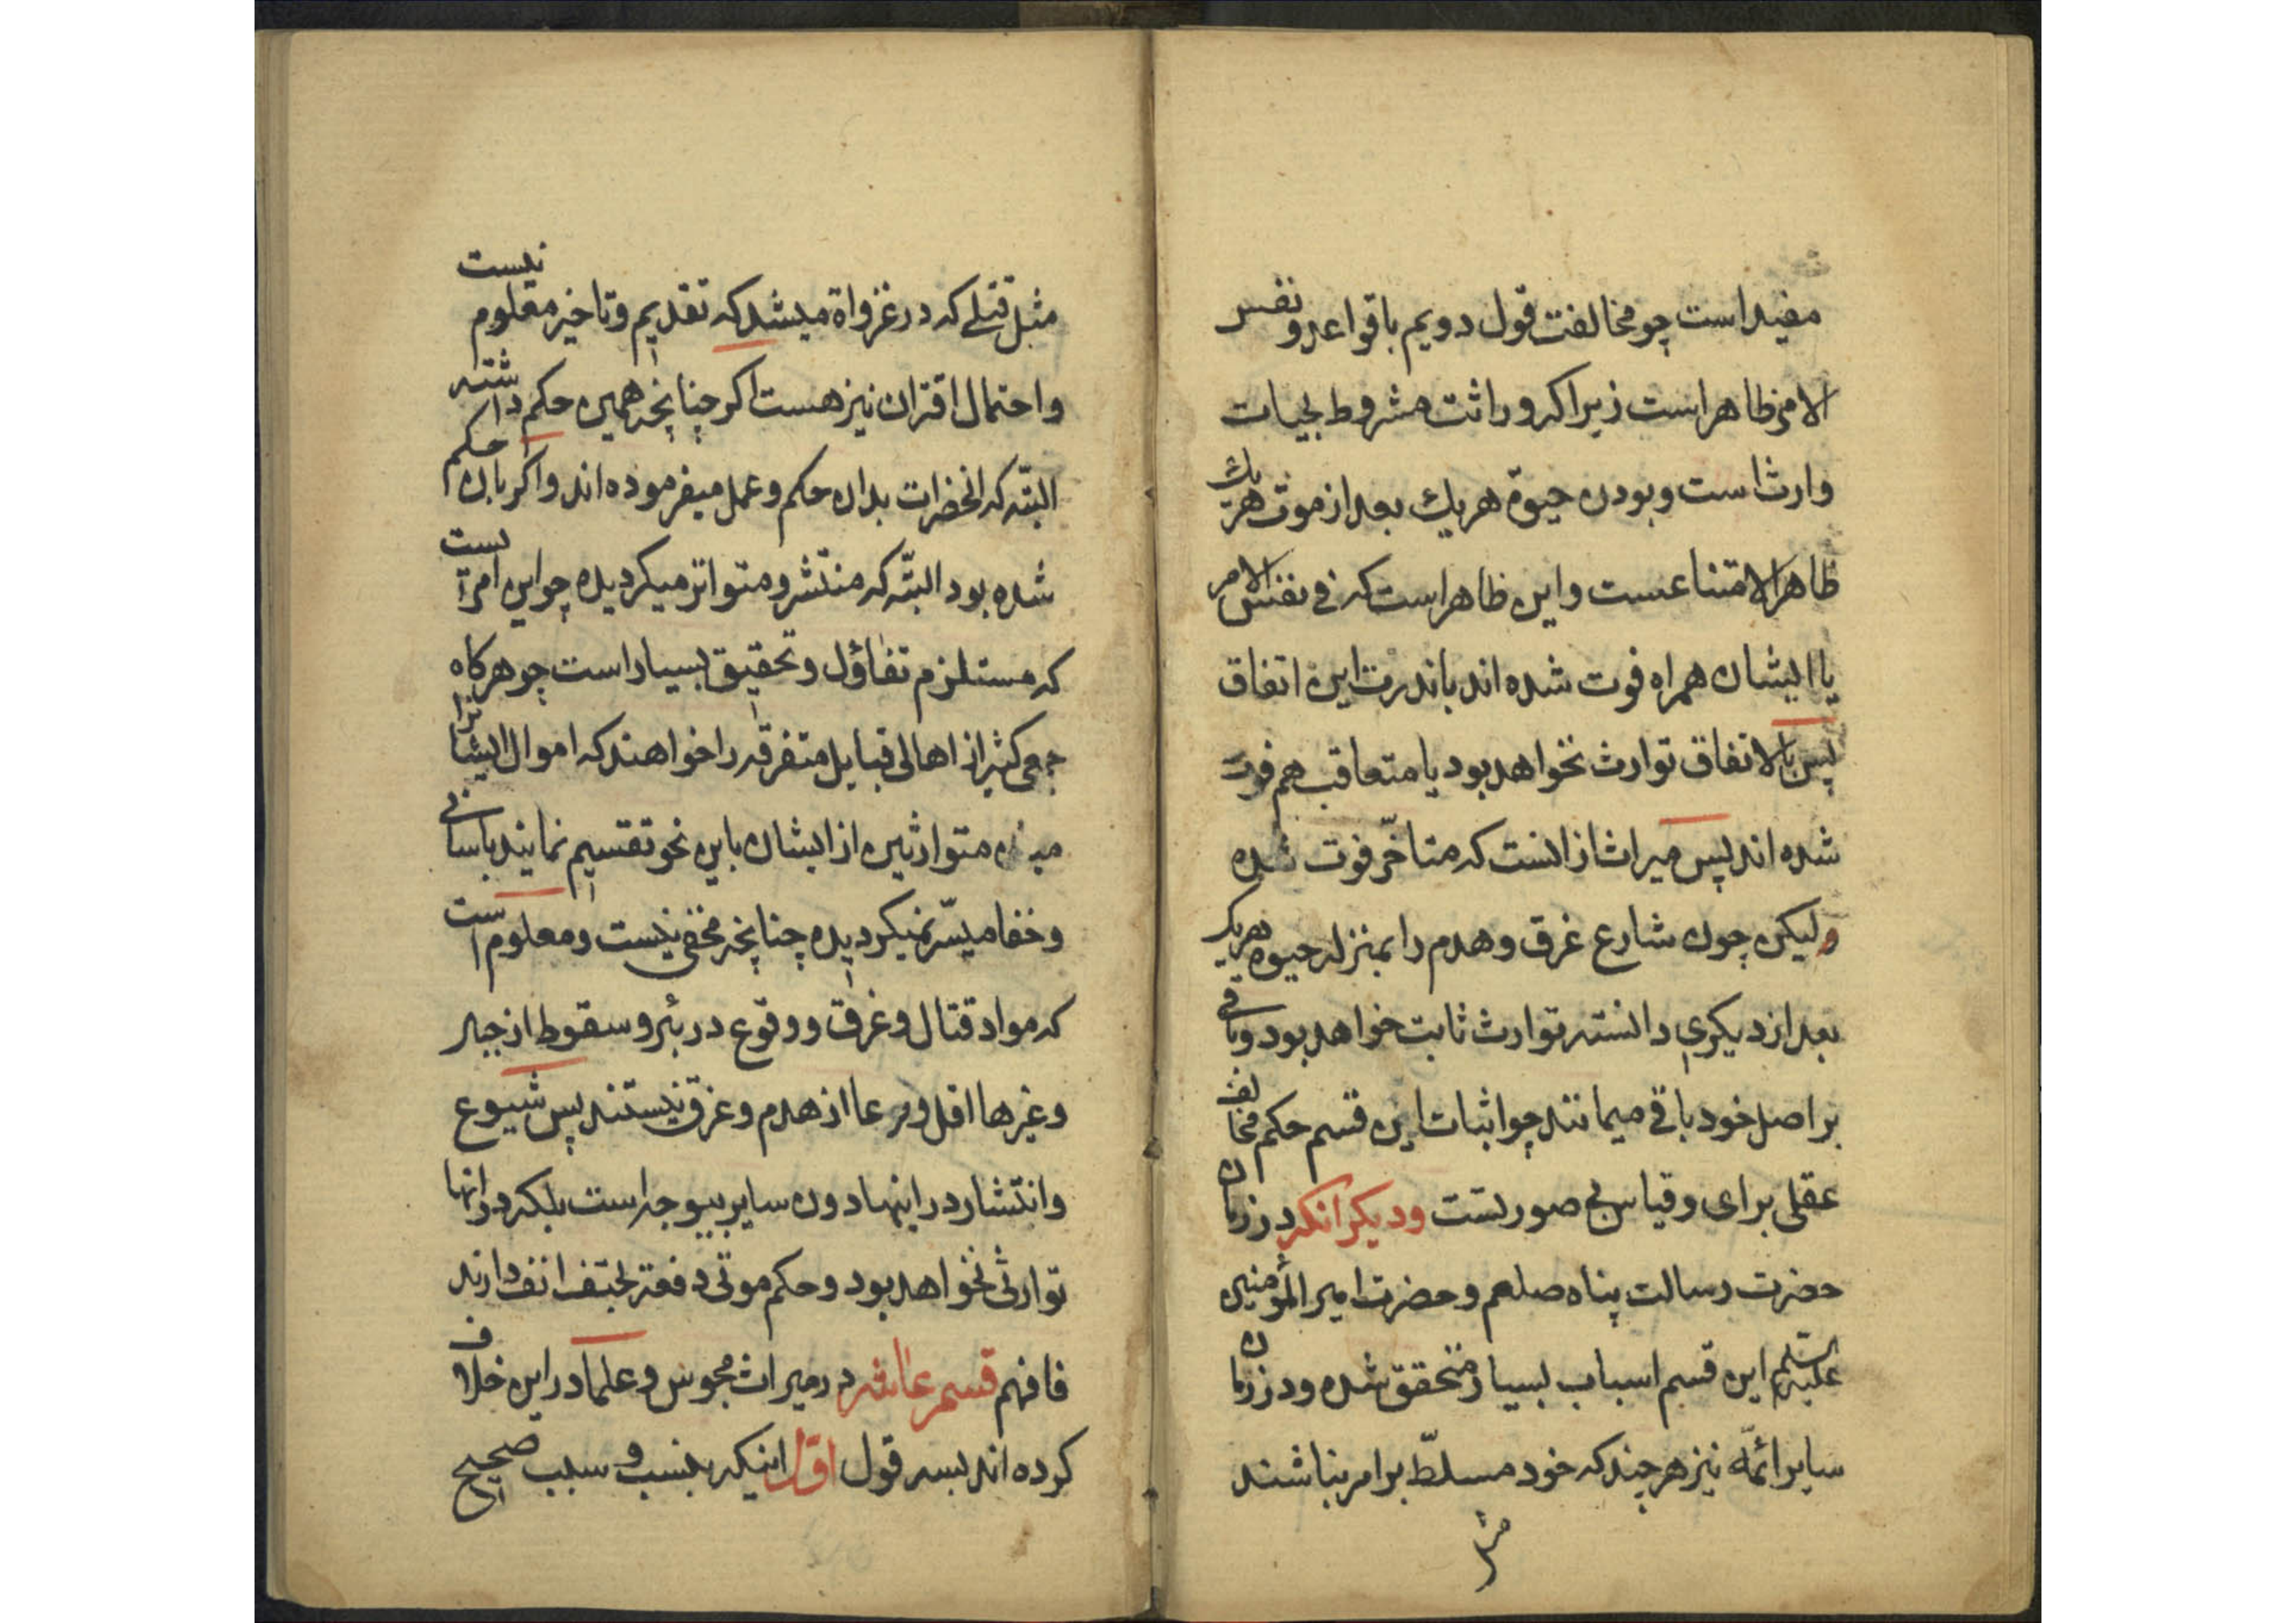 مفید است چو مخالفت قول دویم با قواعد و نفس
الامر ظاهر است زیرا که وراثت مشروط بحیات
وارث است و بودن حیوة هر یك بعد از موت هر یك
ظاهر الامتناعست و این ظاهر است که فی نفس الامر
یا ایشان همراه فوت شده اند باندرت این اتفاق
پس بالاتفاق توارث نخواهد بود یا متعاقب هم فوت
شده اند پس میراث از انست که متاخّر فوت شده
ولیکن چون شارع غرق و هدم را بمنزله حیوه هر یک
بعد از دیکری دانسته توارث ثابت خواهد بود و باقی
بر اصل خود باقی میمانند چو اثبات این قسم حکم مخالف
عقلی برای و قیاس بی صورتست و دیکر انکه در زمان
حضرت رسالت پناه صلعم و حضرت امیر المؤمنین
علیه السّلم این قسم اسباب بسیار متحقق شده و در زمان
سایر ائمّه نیز هر چند که خود مسلّط بر امر نباشند
مثل
مثل قتلی که در غزواة میشد که تقدیم و تاخیر معلوم نیست
و احتمال اقتران نیز هست اکر چنانچه همین حکم داشته
البتّه که انحضرات بدان حکم و عمل میفرموده اند و اکر بان حکم
شده بود البتّه که منتشر و متواتر میکردیده چو این امریست
که مستلزم تفاؤل و تحقیق بسیار است چو هرکاه
جمعی کثیر از اهالی قبایل متفرقه را خواهند که اموال ایشانرا
میان متوارثین از ایشان باین نحو تقسیم نمایند باسانی
و خفا میسّر نمیکردیده چنانچه مخفی نیست و معلوم است
که مواد قتال و غرق و وقوع در بئر و سقوط از جبل
و غیرها اقل وقوعا از هدم و غرق نیستند پس شیوع
و انتشار در اینها دون سایر بیوجه است بلکه در انها
توارثی نخواهد بود و حکم موتی دفعة بحتف انف دارند
فافهم قسم عاشر در میراث مجوس و علما در این خلاف
کرده اند بسه قول اوّل اینکه بنسب و سبب صحیح